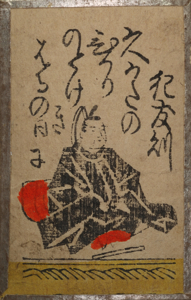 紀友則
久かたの
ひかり
のとけき
はるの日に